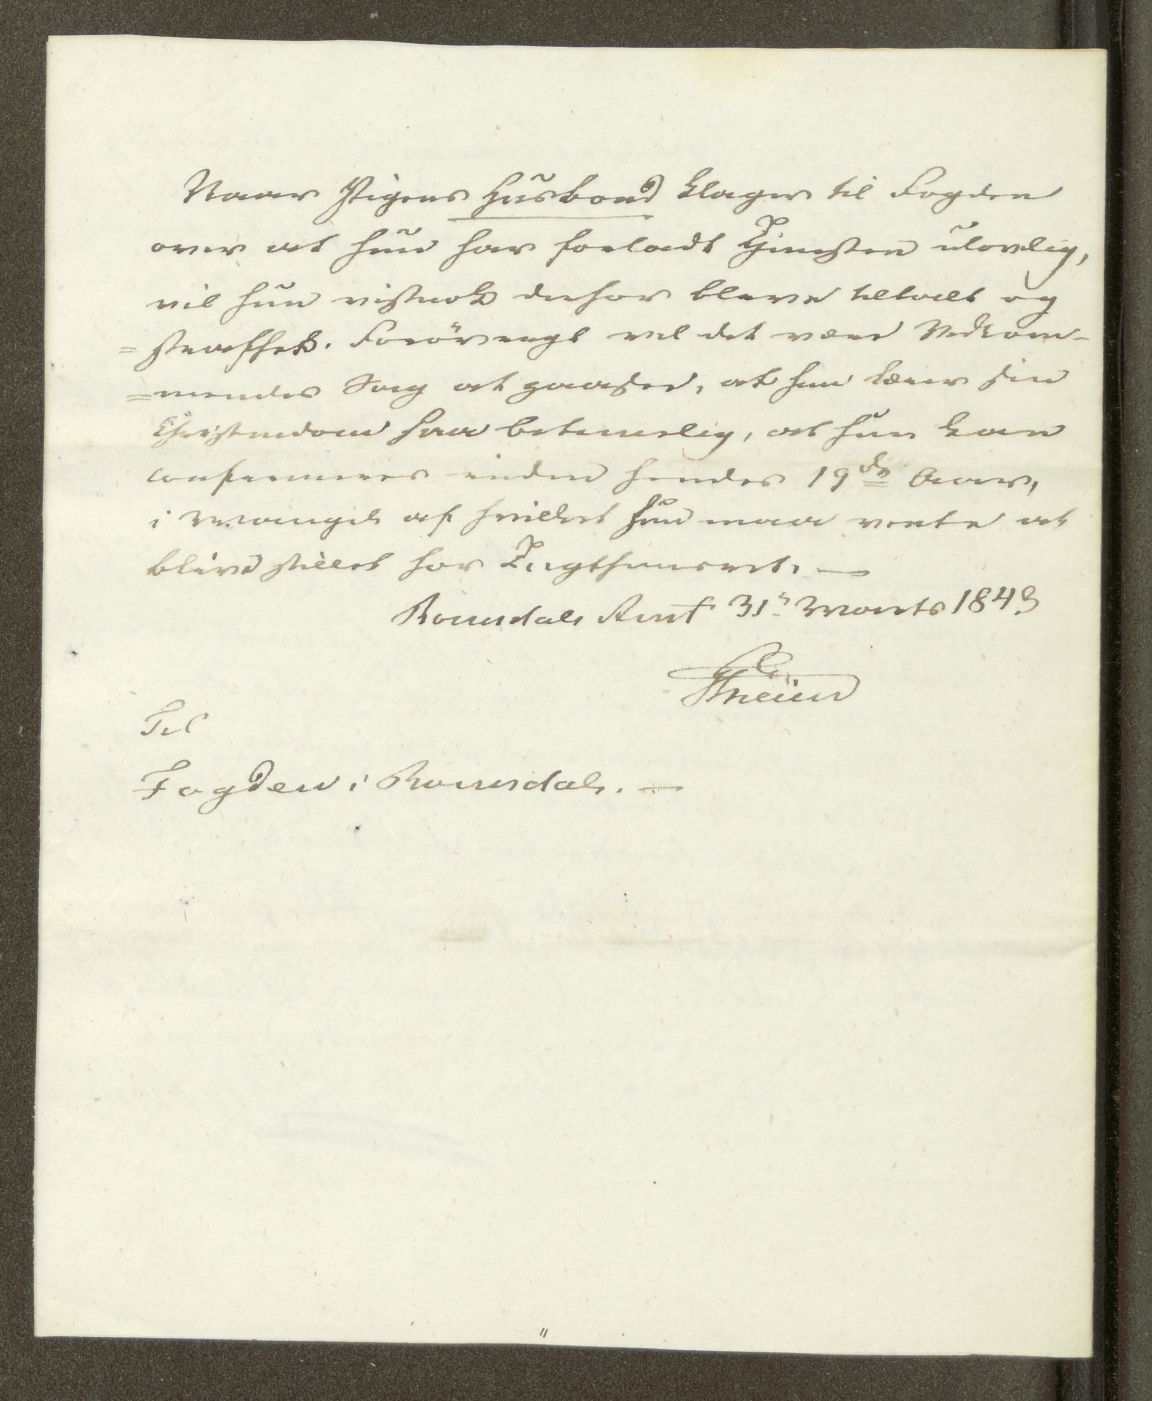 Naar Pigens Husbond klager til Fogden
over at hun har forladt Tjenesten ulovlig,
vil hun vistnok derfor blive tiltalt og
=straffet. Forövrigt vil det være Vedkom-
=mendes Sag at paasee, at hun lærer sin
Christendom saa betimelig, at hun kan
confirmeres inden hendes 19de Aar,
i Mangel af hvilket hun maa vente at
blive stillet for Tugthuusret. —
Romsdals Amt 31te Marts 1843
Til
Fogden i Romsdal. —